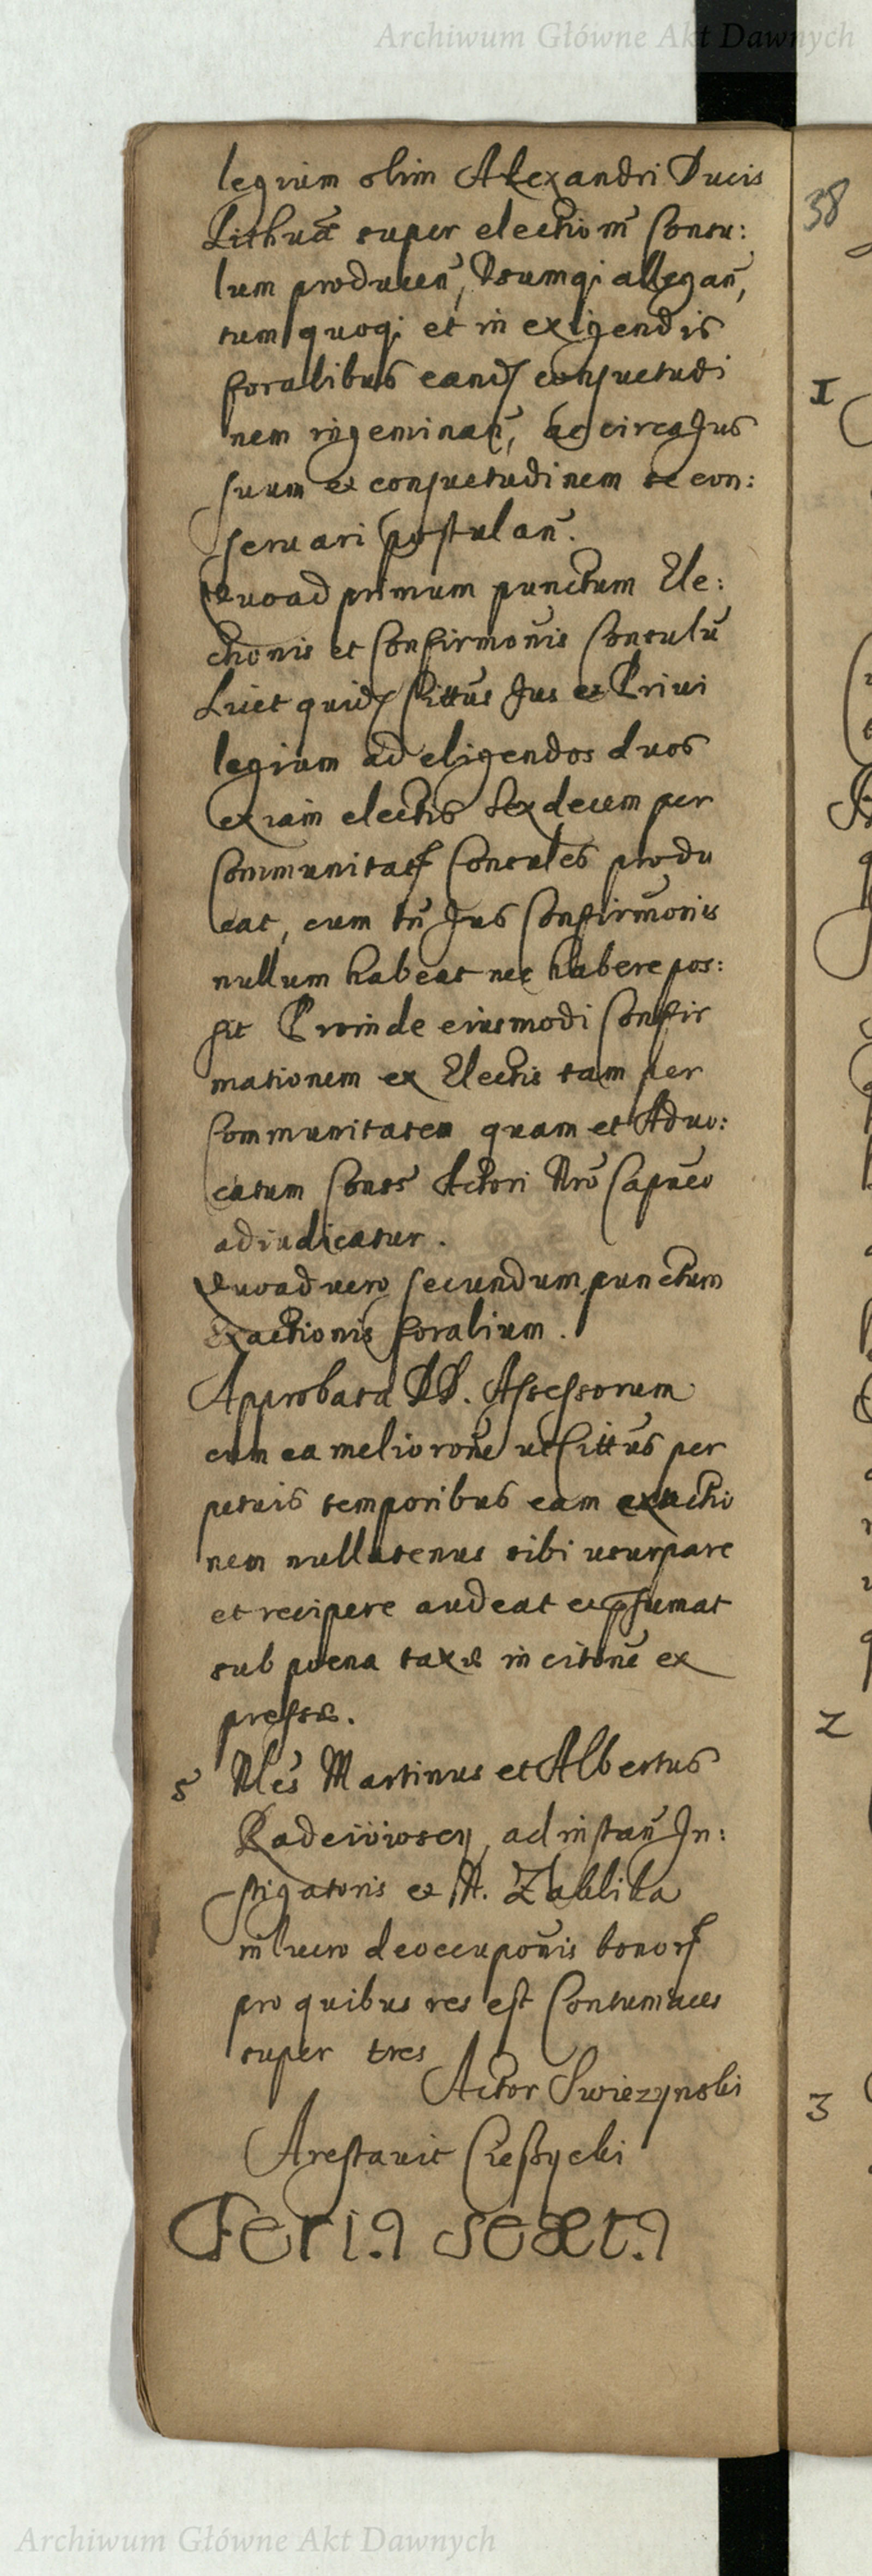 Archiwum Główne Akt Dawnych
legium olim Alexandri Ducis
Lithuā super electionē Consu:
lum producen̄, Usumq; allegan̄,
tum quoq; et in exigendis
foralibus eand consuetudi
nem ingeminan̄, ac circa Jus
suum et consuetudinem se con:
seruari postulan̄.
Quoad primum punctum Ele:
ctionis et Confirmōnis Consulū
Licet quid Cittus Jus et Priui
legium ad eligendos duos
ex iam electis Sexdecem per
Communitat Consules produ
cat, cum tn̄ Jus Confirmōnis
nullum habeat nec habere pos:
sit Proinde eiusmodi Confir
mationem ex Electis tam per
Communitatem quam et Aduo:
catum Conss Actori Nro Capneo
adiudicatur.
Quoad uero secundum punctum
Exactionis foralium.
Approbata DD. Assessorum
cum ea meliorōne ut Cittus per
petuis temporibus eam exactio
nem nullatenus sibi usurpare
et recipere audeat et p̄sumat
sub poena taxæ in citōne ex
pressæ.
5 Nles Martinus et Albertus
ad instan̄ In:
stigatoris et N.
in lucro de occupōnis bonor
pro quibus res est Contumaces
super tres
Actor Swiezynski
Arestauit
Feria sexta
38
1
2
3
Archiwum Główne Akt Dawnych